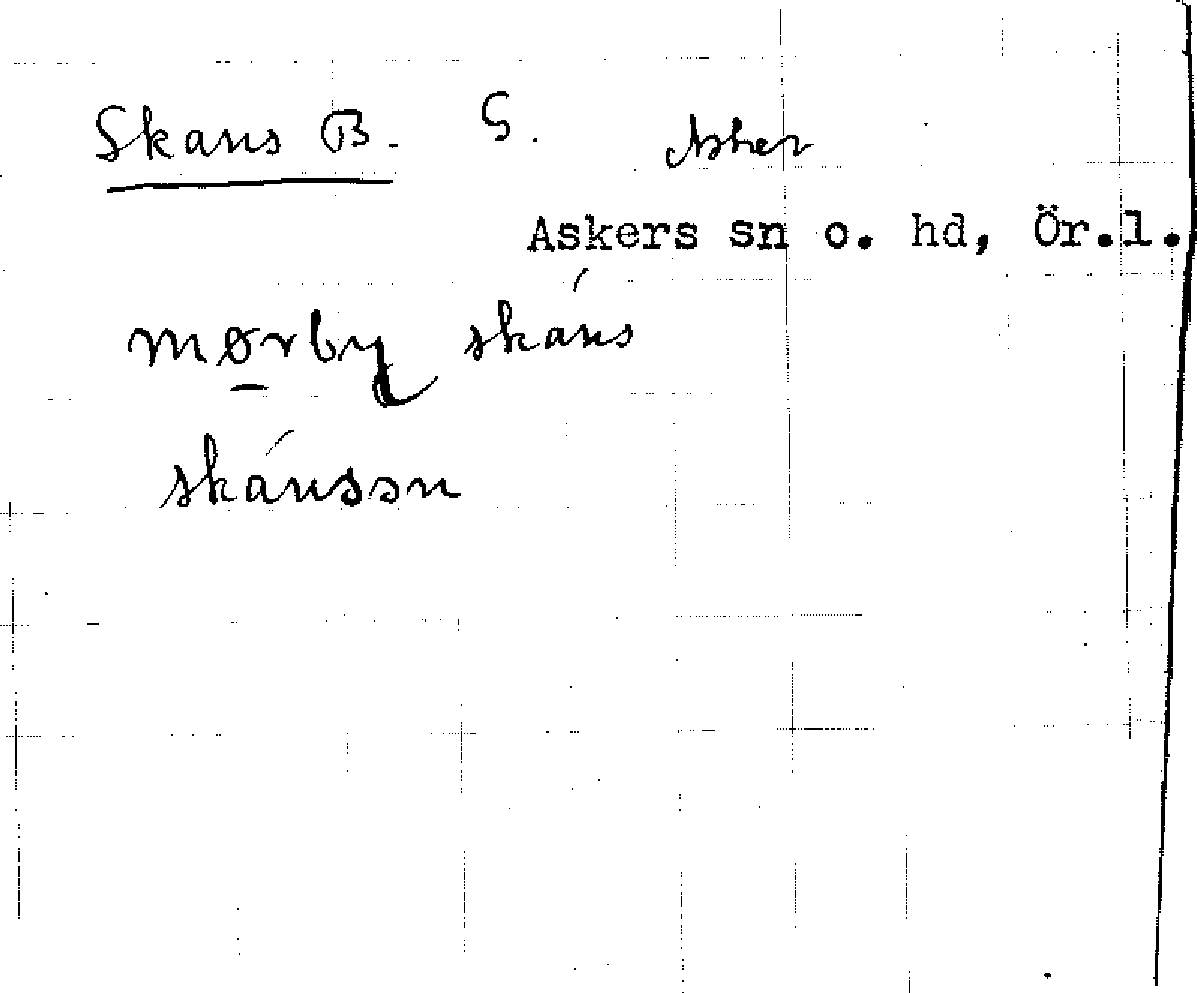 Skans B. S. Asker
Askers sn o. hd, Ör.l.
mørby skáns
skánssn